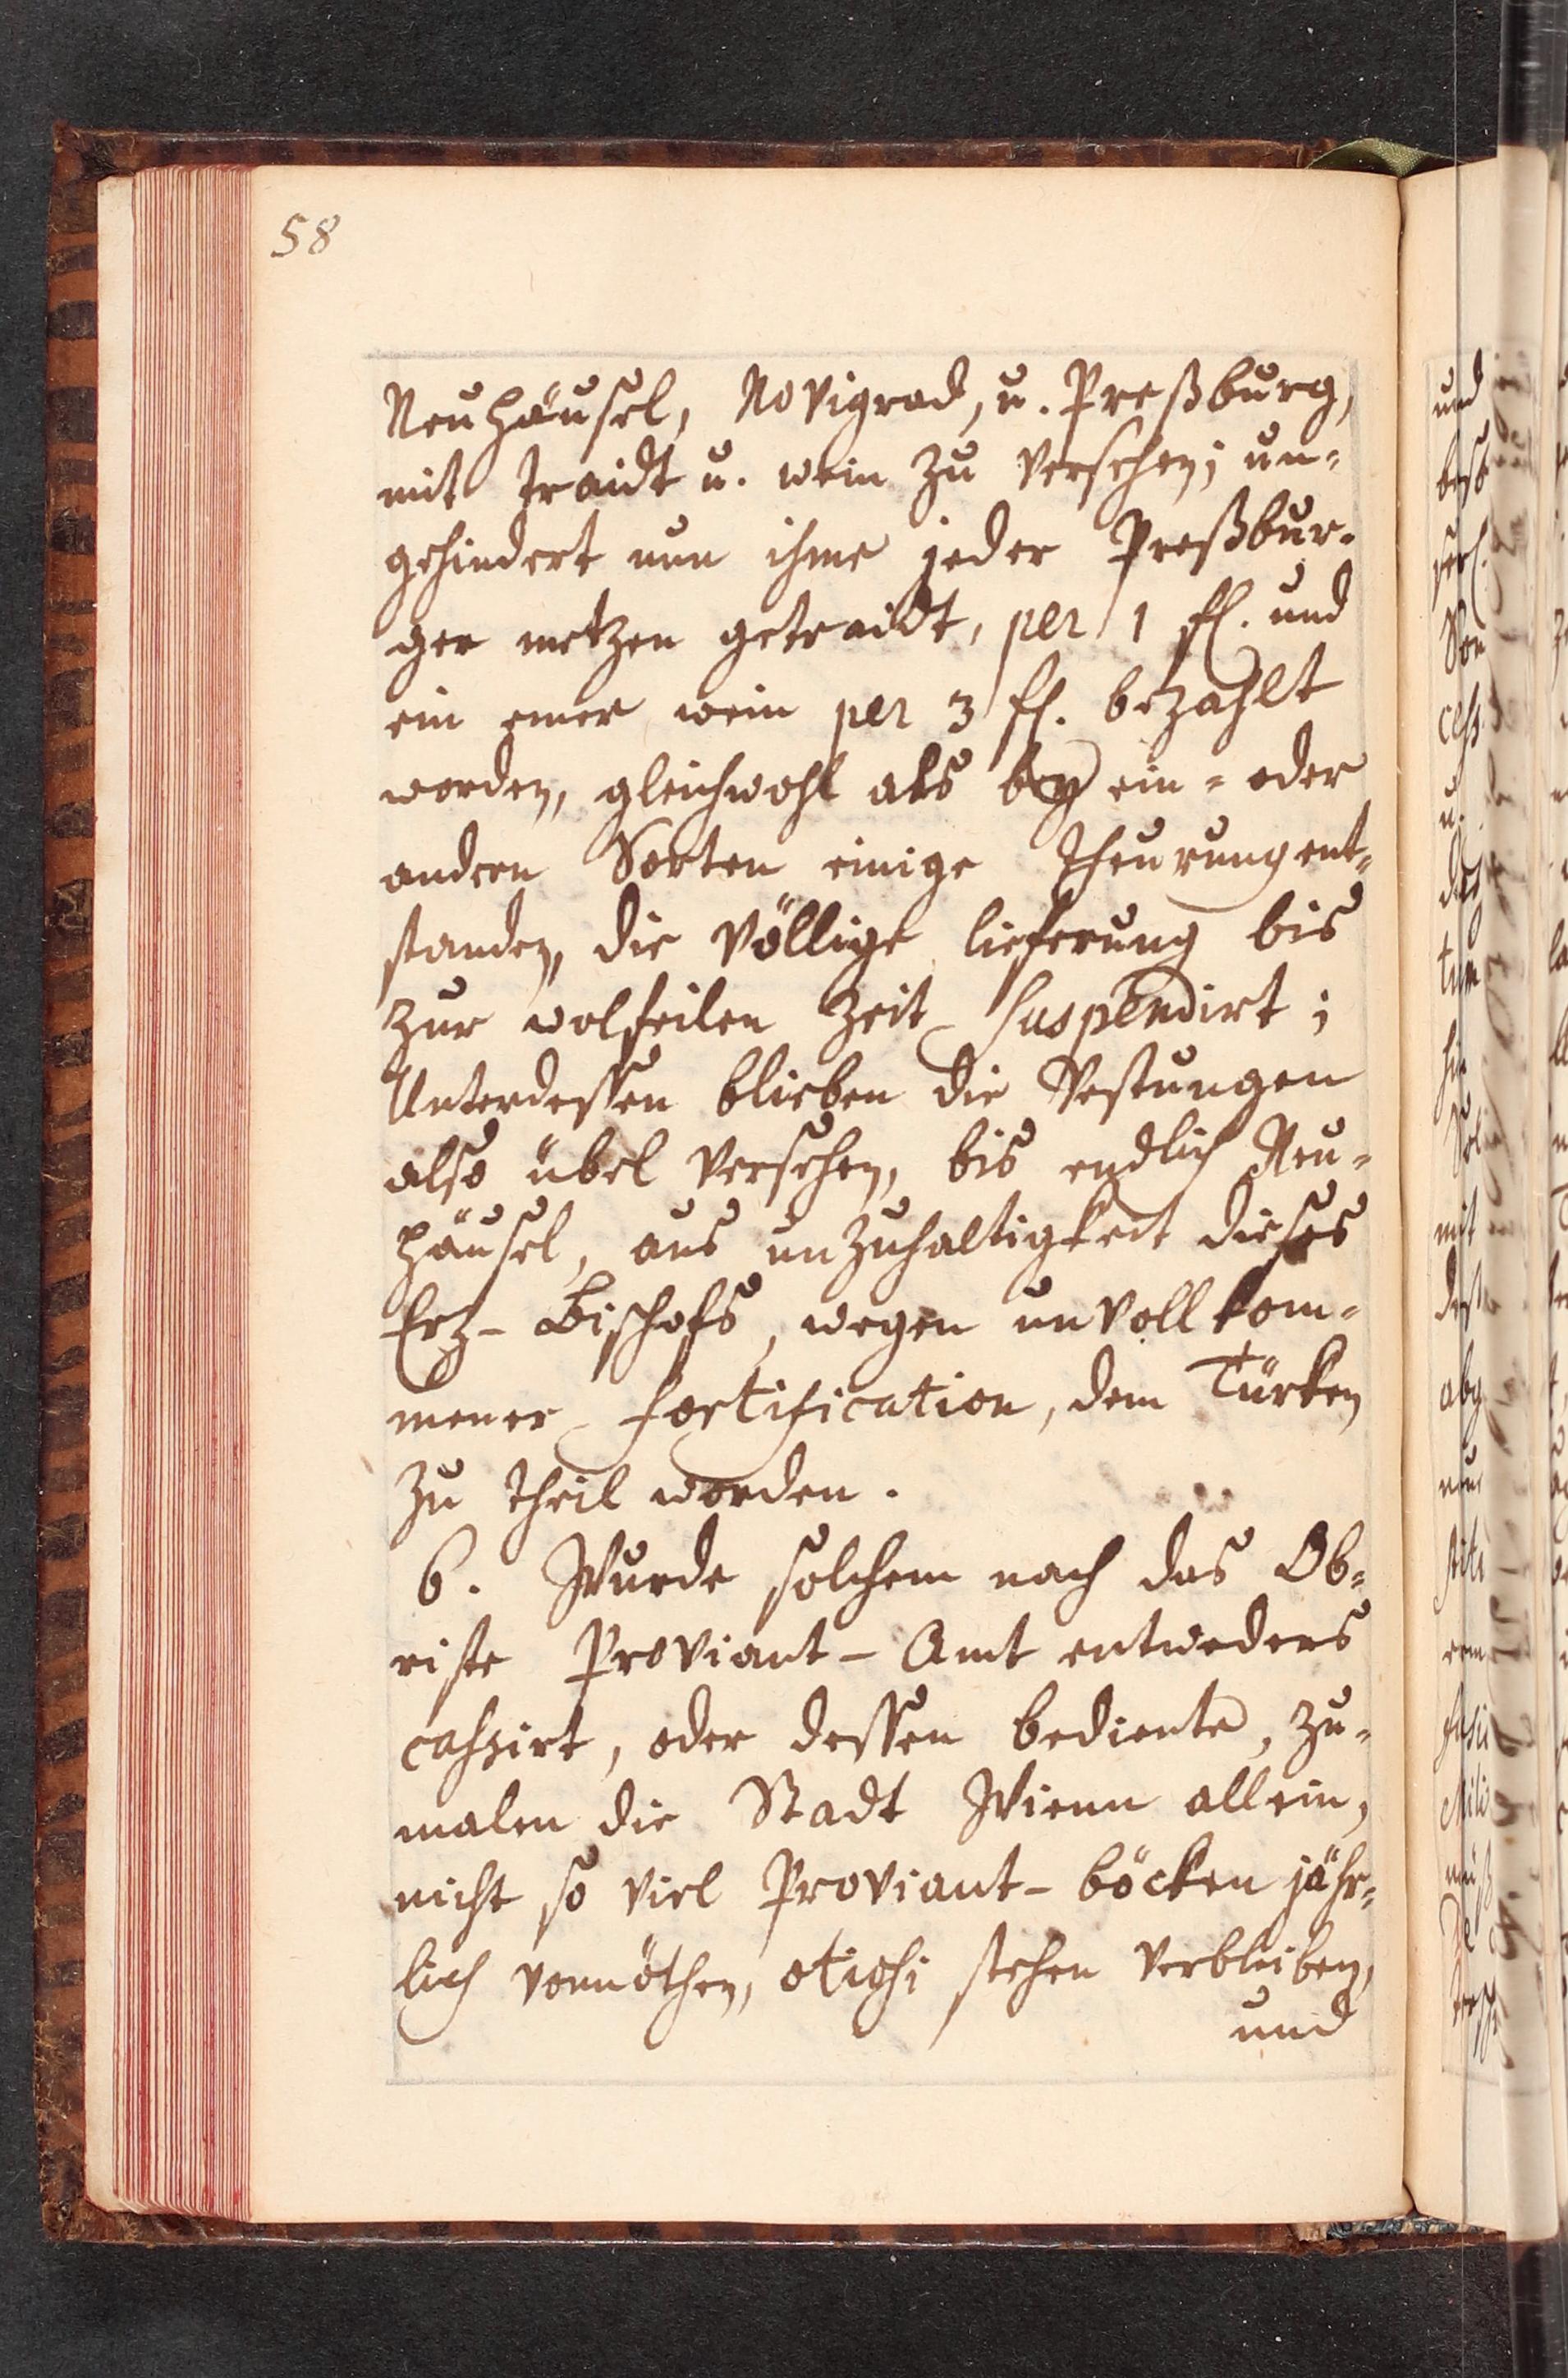 58
Neuhäusel, Novigrad, u. Preßburg,
mit traidt u. wein zu versehen; un=
gehindert nun ihme jeder Preßbur=
ger metzen getraidt, per 1 fl. und
ein emer wein per 3 fl. bezahlt
worden, gleichwohl als bey ein= oder
andern Sorten einige Theurung ent=
standen, die völlige lieferung bis
zur wolfeilen Zeit suspendirt;
Unterdessen blieben die Vestungen
also übel versehen, bis endlich Neu=
häusel, aus unzuhaltigkeit dieses
Erz-Bischofs, wegen unvollkom=
mener fortification, dem Türken
zu theil worden.
6. Wurde solchem nach das Ob=
riste Proviant-Amt entweders
cassirt, oder dessen bediente, zu=
malen die Stadt Wienn allein,
nicht so viel Proviant-böcken jähr=
lich vonnöthen, otiosi stehen verbleiben,
und